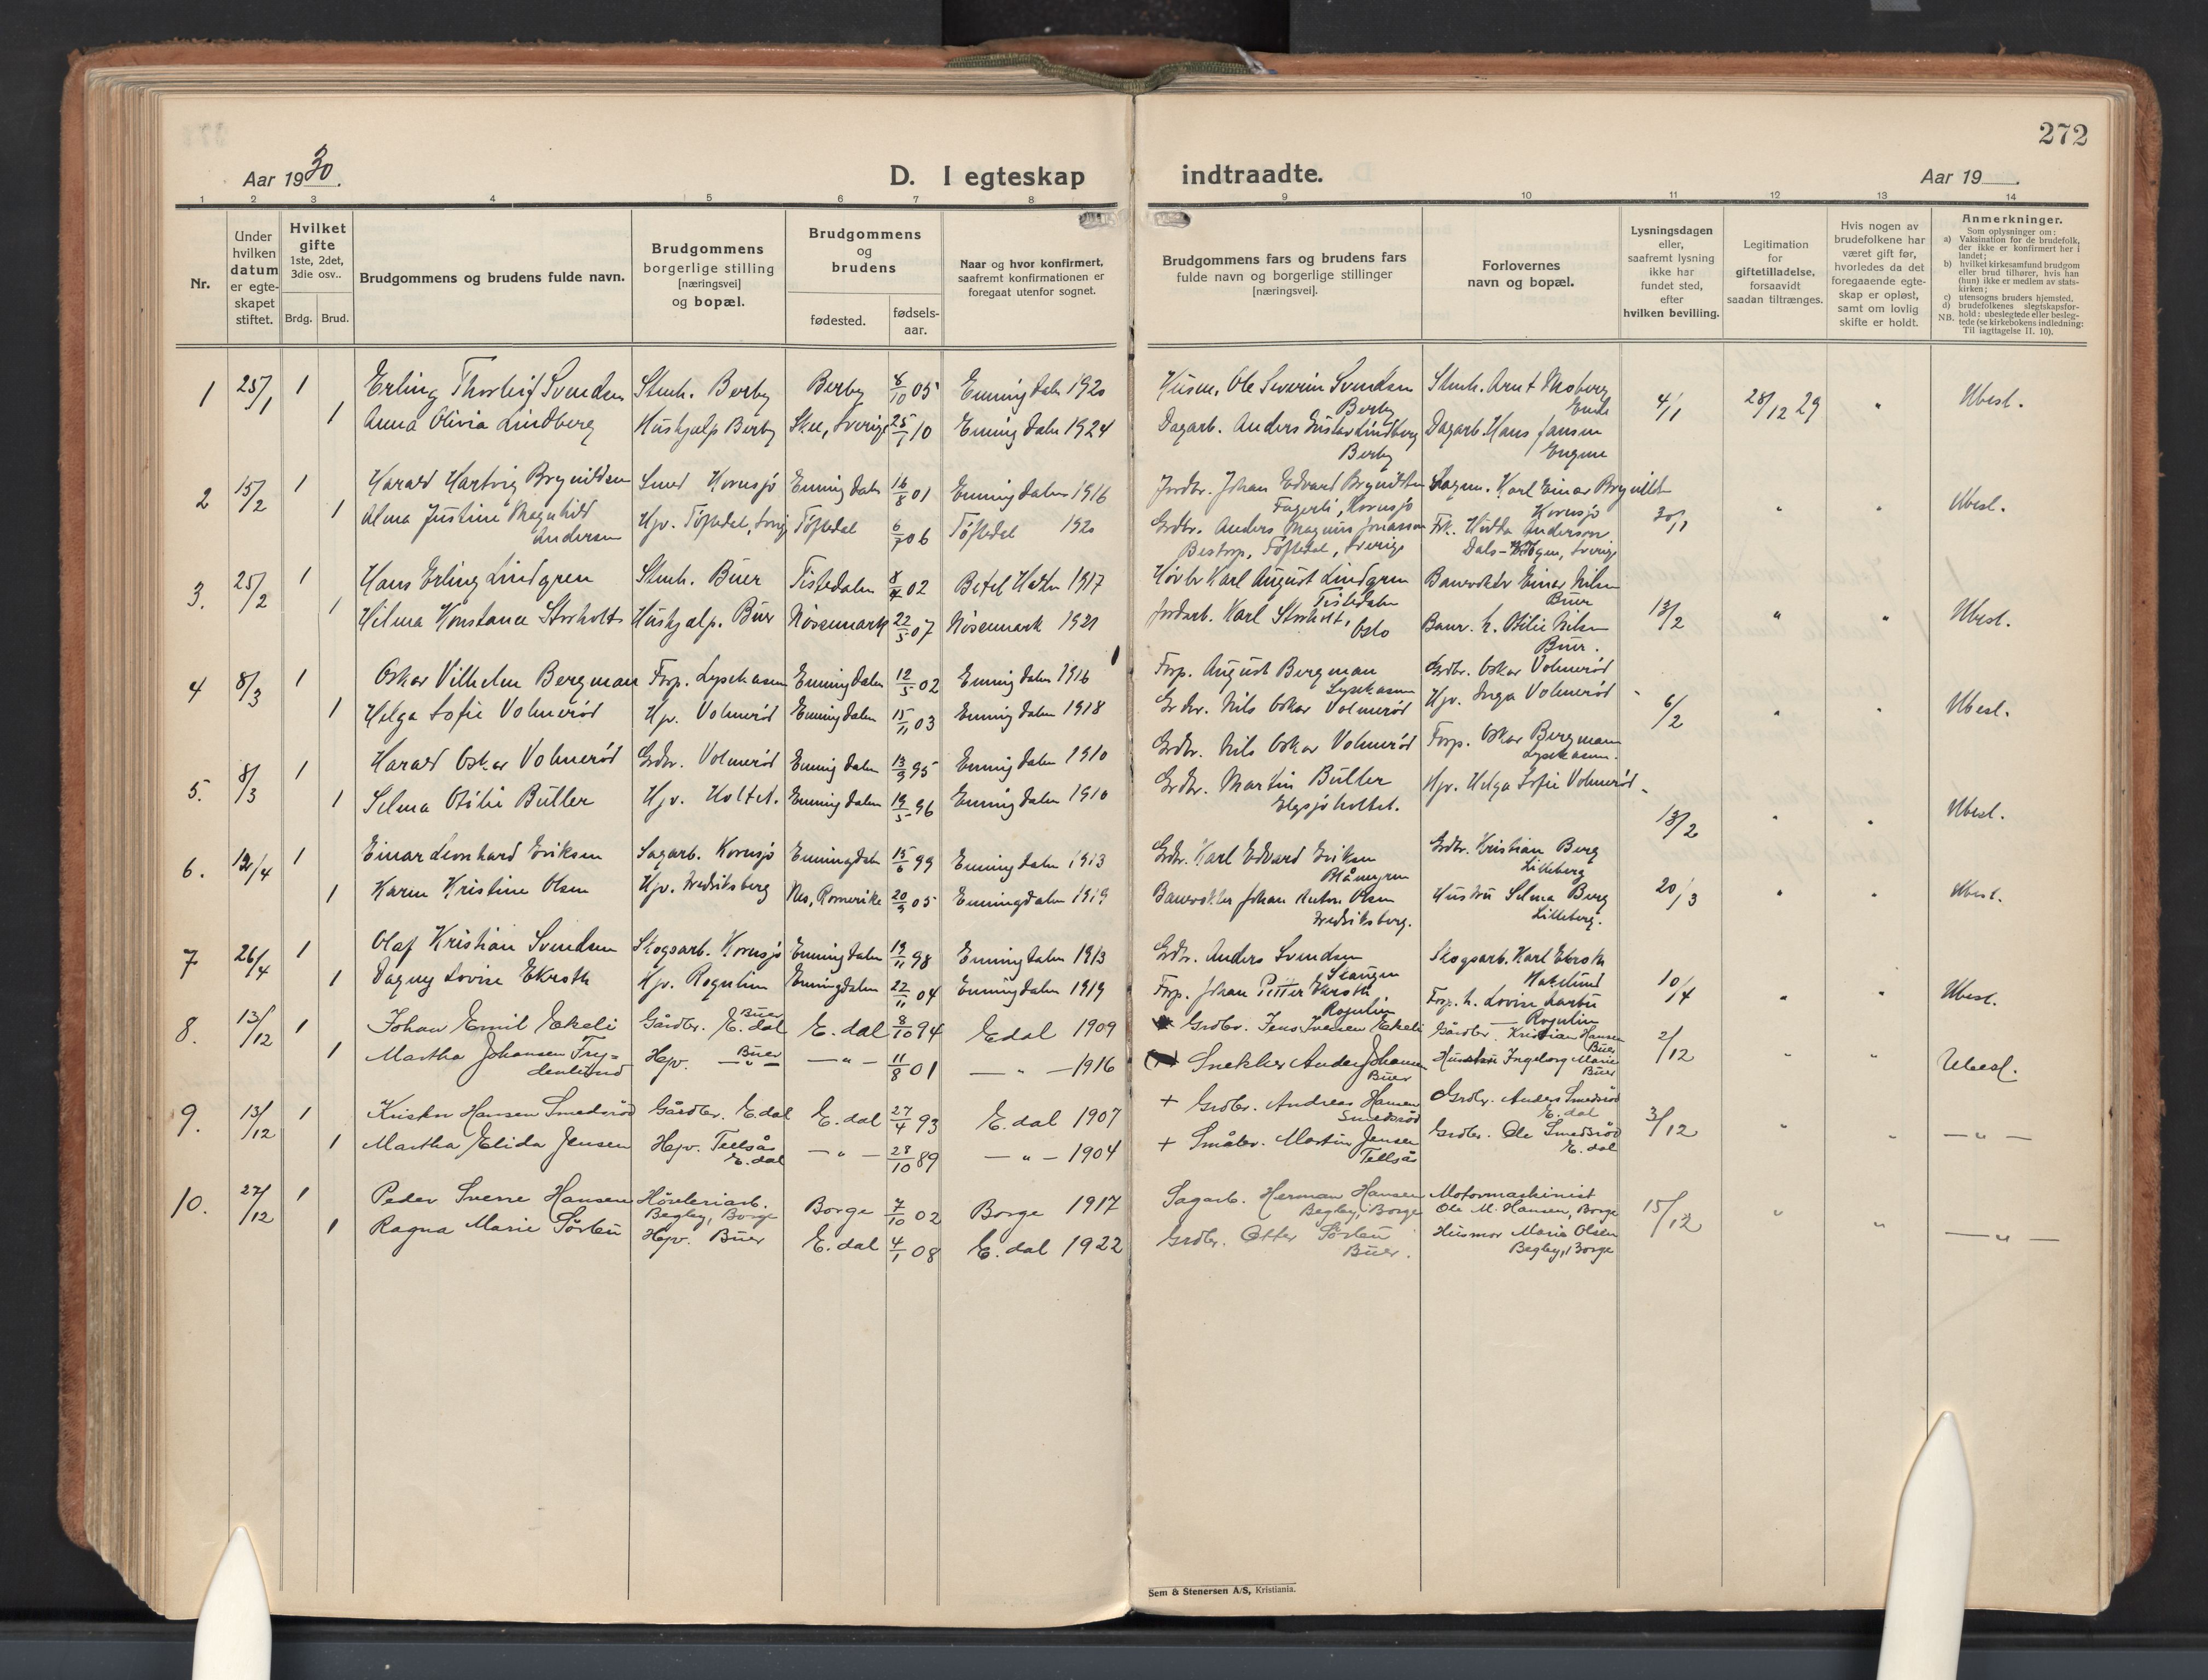 272
Aar 1930.
D. I egteskap
indtraadte.
Aar 19
1 2 3 4 5 6 7 8 9 10 11 12 13 14
Nr.
Under hvilken datum er egteskapet stiftet.
Hvilket gifte 1ste, 2det, 3die osv..
Brdg. Brud.
Brudgommens og brudens fulde navn.
Brudgommens borgerlige stilling [næringsvei] og bopæl.
Brudgommens og brudens
fødested.
fødsels-aar.
Naar og hvor konfirmert, saafremt konfirmationen er foregaat utenfor sognet.
Brudgommens fars og brudens fars fulde navn og borgerlige stillinger [næringsvei].
Forlovernes navn og bopæl.
Lysningsdagen eller, saafremt lysning ikke har fundet sted, efter hvilken bevilling.
Legitimation for giftetilladelse, forsaavidt saadan tiltrænges.
Hvis nogen av brudefolkene har været gift før, hvorledes da det foregaaende egteskap er opløst, samt om lovlig skifte er holdt.
Anmerkninger.
Som oplysninger om:
a) Vaksination for de brudefolk, der ikke er konfirmert her i landet;
b) hvilket kirkesamfund brudgom eller brud tilhører, hvis han (hun) ikke er medlem av statskirken;
c) utensogns bruders hjemsted.
d) brudefolkenes slegtskapsforhold: ubeslegtede eller beslegtede (se kirkebokens indledning:
NB. Til iagttagelse II. 10).
1 25/1 1 Erling Thorleif Svendsen Stenh. Berby Berby 8/10 05 Enningdalen 1920 Husm. Ole Severin Svendsen Stenh. Arnt Moberg
Berby Ende 4/1 28/12 29 " Ubesl.
1 Anna Olivia Lindberg Hushjælp Berby Skee, Sverige 25/1 10 Enningdalen 1924 Dagarb. Anders Gustav Lindberg Dagarb. Hans Jansen
Berby
2 15/2 1 Harald Hartvig Brynildsen Smed Kornsjø Enningdalen 16/8 01 Enningdalen 1916 Jordbr. Johan Edvard Brynildsen Sagm. Karl Einar Brynildsen
Fagerli, Kornsjø Kornsjø 30/1 " " Ubesl.
1 Alma Justine Magnhild Hjv. Töftedal, Sverig Töftedal 6/7 06 Töftedal 1920 Grdbr. Anders Magnus Jonasson Frk. Hulda Anderson
Andersen Töftedal, Sverige Dals- Sverige
3. 25/2 1 Hans Erling Lindgren Stenh. Buer Tistedalen 02 1917 Karl August Lindgren Banevokter Einar Nilsen
Tistedalen Buer 13/2 " " Ubesl.
1 Hilma Konstance Storholt Hushjælp. Buer Nösemark 22/5 07 Nösemark 1921 Jordarb. Karl Storholt, Banv. h. Otilie Nilsen
Oslo Buer.
4 8/3 1 Oskar Vilhelm Bergman Forp. Lysekasen Enningdalen 12/5 02 Enningdalen 1916 Forp. August Bergman Grdbr. Oskar Volmerød
Lysekasen 6/2 " " Ubesl.
1 Helga Sofie Volmerød Hjv. Volmerød Enningdalen 15/11 03 Enningdalen 1918 Grdbr. Nils Oskar Volmerød Hjv. Inga Volmerød
5. 8/3 1 Harald Oskar Volmerød Grdbr. Volmerød Enningdalen 13/9 95 Enningdalen 1910 Grdbr. Nils Oskar Volmerød Forp. Oskar Bergmann
Lysekasen.
1 Selma Otilie Buller Hjv. Holtet. Enningdalen 19/5 96 Enningdalen 1910 Grdbr. Martin Buller Hjv. Helga Sofie Volmerød
Elgsjøholtet. 13/2 " " Ubesl.
6. 12/4 1 Einar Leonhard Eriksen Sagarb. Kornsjø Enningdalen 15/6 99 Enningdalen 1913 Grdbr. Karl Edvard Eriksen Grdbr. Kristian Berg
Blåmyren Lilleberg
1 Karen Kristine Olsen Hjv. Fredriksberg Nes, Romerike 20/9 05 Enningdalen 1919 Banevokter Johan Anton Olsen Hustru Selma Berg 20/3 " " Ubesl.
Fredriksberg. Lilleberg.
7 26/4 1 Olaf Kristian Svendsen Skogsarb. Kornsjø Enningdalen 19/11 98 Enningdalen 1913 Grdbr. Anders Svendsen Skogsarb. Karl Ekroth
Skaugen Hakelund 10/4 " " Ubesl.
1 Dagny Lovise Ekroth Hjv. Rogulien Enningdalen 22/11 04 Enningdalen 1919 Forp. Johan Petter Forp. h. Lovise
Rogulien Rogulien
8. 13/12 1 Johan Emil Ekeli Gårdbr. Buer E. dal E. dal 8/10 94 E dal 1909 Grdbr. Jens Iversen Ekeli Gårdbr. Kristian Hansen
Buer 2/12 " " Ubesl.
1 Martha Johansen Fry= Hjv. Buer — " — — " — 11/8 01 — " — 1916 Snekker Anders Johansen Hustru Ingeborg Marie
denlund Buer Buer
9. 13/12 1 Kristen Hansen Smedsröd Gårdbr. E. dal E. dal 27/4 93 E. dal 1907 + Grdbr. Andreas Hansen Grdbr. Anders Smedsröd
Smedsröd E. dal 3/12 " " — " —
1 Martha Elida Jensen Hjv. Tellsås — " — 28/10 89 — " — 1904 + Småbr. Martin Jensen Grdbr. Ole Smedsröd
E. dal Tellsås E. dal
10. 27/12 1 Peder Sverre Hansen Höveleriarb. Borge 7/10 02 Borge 1917 Sagarb. Herman Hansen Motormaskinist
Begby, Borge Begby, Borge Ole M. Hansen, Borge 15/12 " " — " —
1 Ragna Marie Sörbu Hjv. Buer E. dal 4/1 08 E. dal 1922 Grdbr. Otter Sörbu Husmor Marie Olsen
Buer. Begby, Borge
Sem & Stenersen A/S, Kristiania.